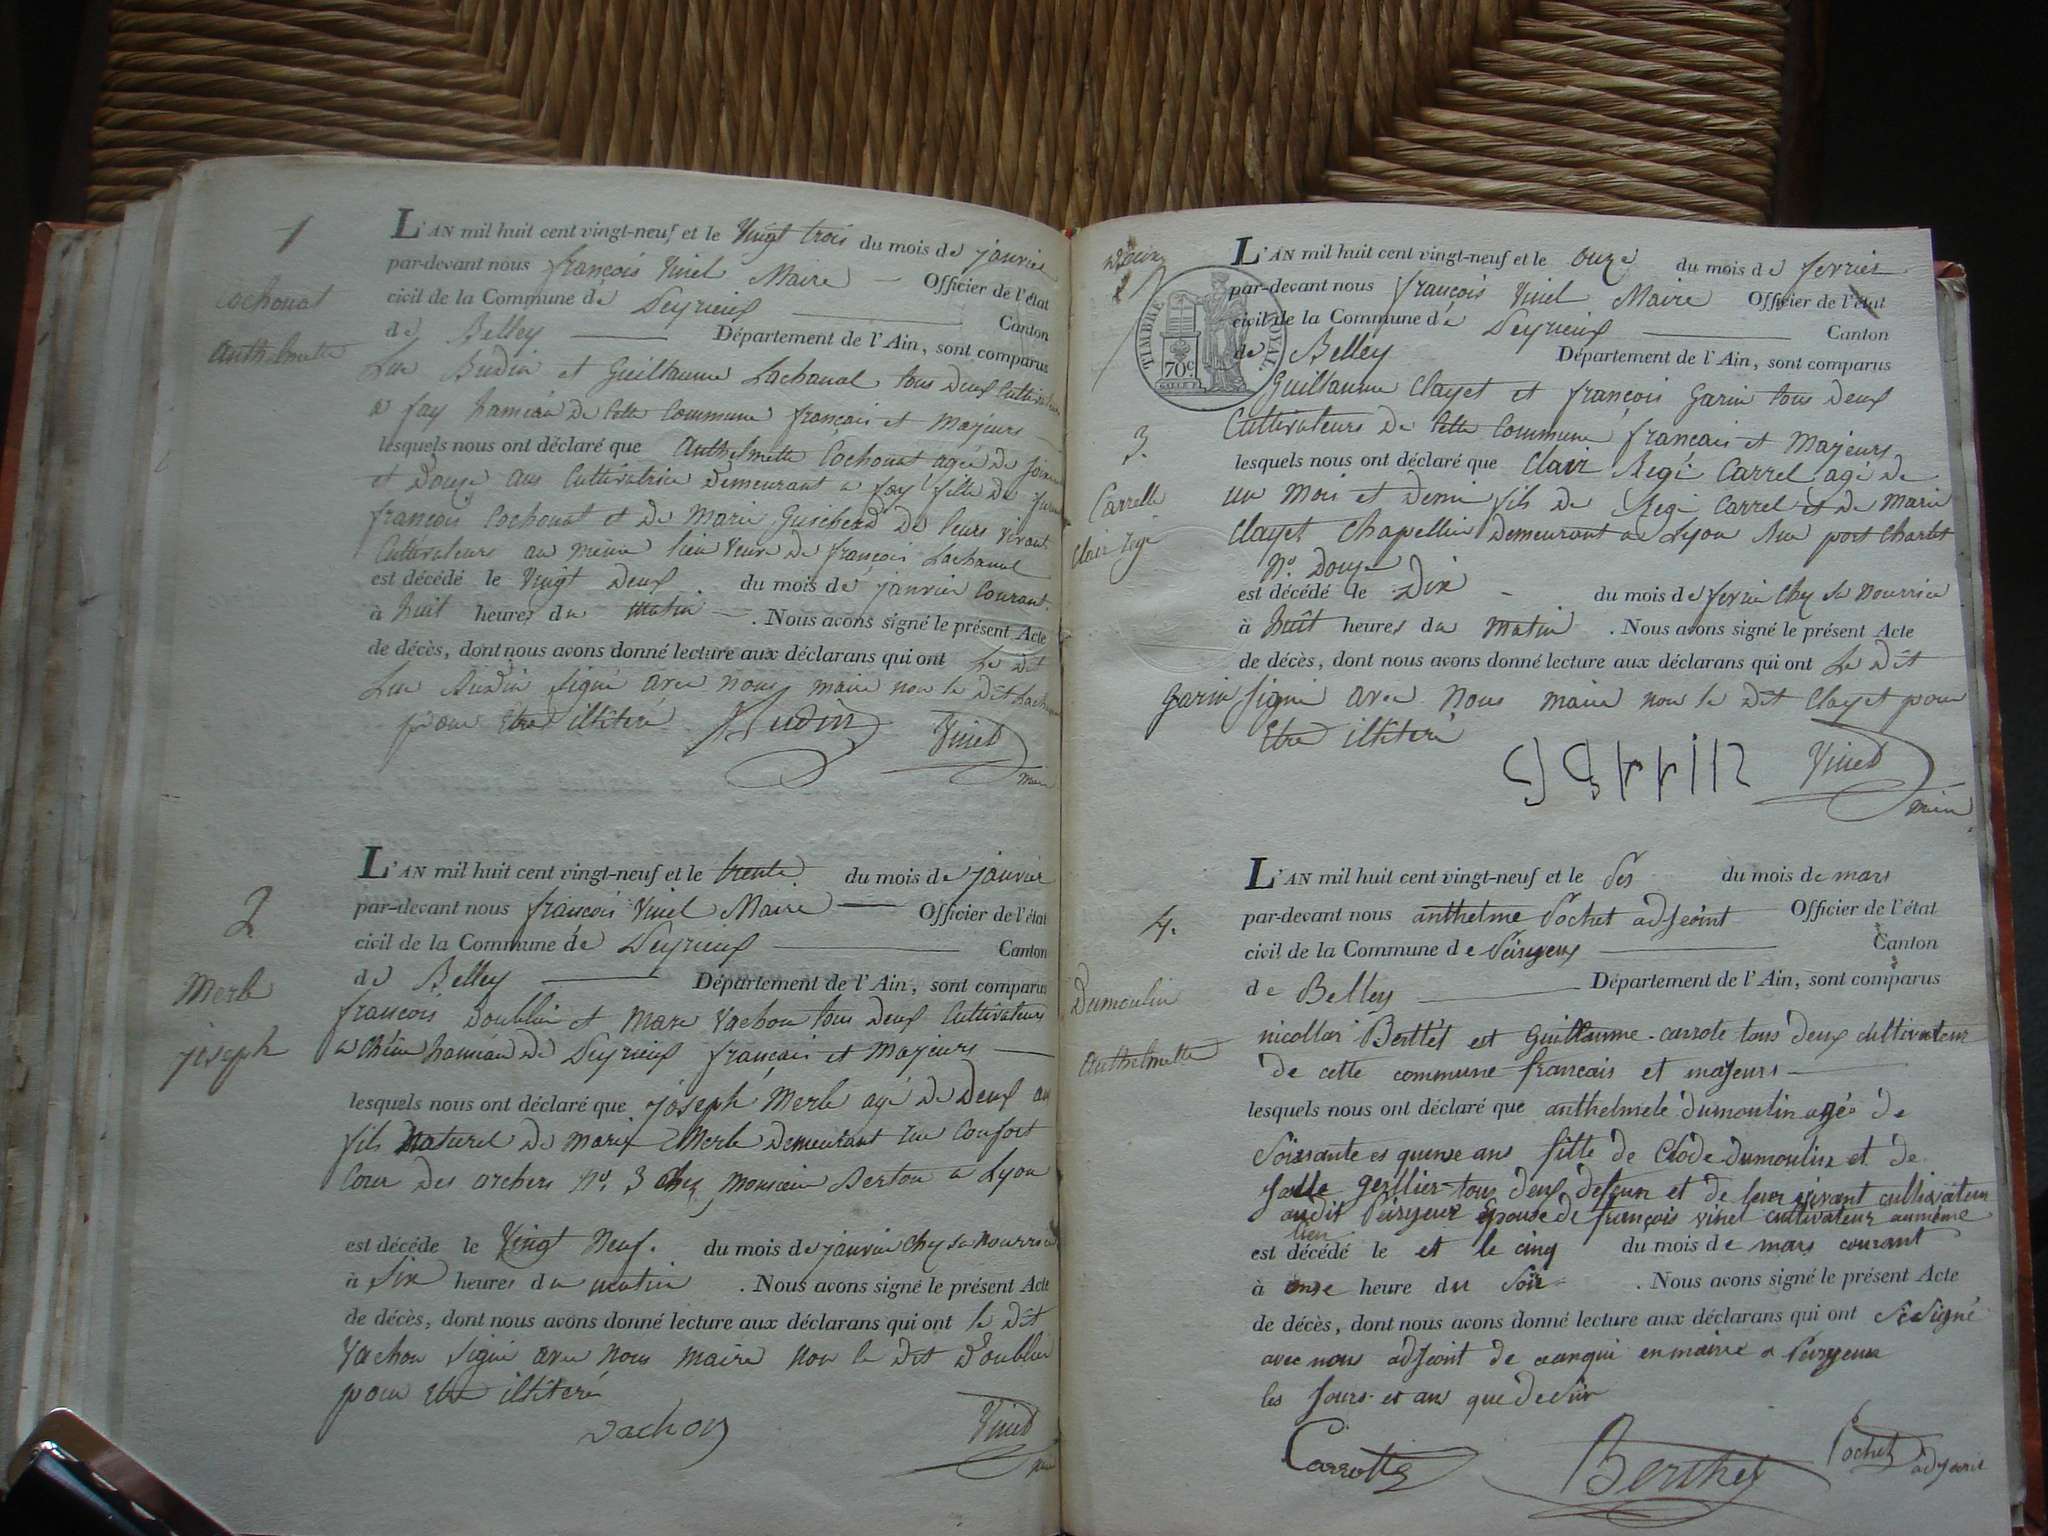 1
Cochonat
Anthelmette
L'AN mil huit cent vingt-neuf et le Vingt trois du mois de janvier
par-devant nous françois Vinel Maire Officier de l'état
civil de la Commune de Peyrieux Canton
de Belley Département de l'Ain, sont comparus
Luc Budin et Guillaume Lachanal tous deux Cultivateurs
a fay hameau de Cette Commune français et Majeurs
lesquels nous ont déclaré que Anthelmette Cochonat agée de soixante
et Douze ans Cultivatrice Demeurant a fay fille de
françois Cochonat et de Marie Guicherd de leurs vivant
Cultivateurs au même lieu veuve de françois Lachanal
est décédé le Vingt deux du mois de janvier Courant
à huit heures du matin. Nous avons signé le présent Acte
de décès, dont nous avons donné lecture aux déclarans qui ont Le dit
Luc Budin signé avec nous maire non le dit Lachanal
pour Etre illitéré
Budin Vinel
maire
2
Merle
joseph
L'AN mil huit cent vingt-neuf et le trente du mois de janvier
par-devant nous françois Vinel Maire Officier de l'état
civil de la Commune de Peyrieux Canton
de Belley Département de l'Ain, sont comparus
françois Doublier et Marc Vachon tous deux Cultivateurs
a hameau de Peyrieux français et Majeurs
lesquels nous ont déclaré que joseph Merle agé de Deux ans
fils Naturel de Marie Merle demeurant rue Confort
Cour des archers No. 3 chez monsieur Berton a Lyon
est décédé le Vingt Neuf. du mois de janvier Chez sa nourrice
à Six heures du matin. Nous avons signé le présent Acte
de décès, dont nous avons donné lecture aux déclarans qui ont le dit
Vachon signé avec nous maire non le dit Doublier
pour etre illitéré
vachon Vinel
TIMBRE ROYAL
70c.
3.
Carrelle
Clair regé
L'AN mil huit cent vingt-neuf et le onze du mois de fevrier
par-devant nous françois Vinel Maire Officier de l'état
civil de la Commune de Peyrieux Canton
de Belley Département de l'Ain, sont comparus
Guillaume Clayet et françois Garin tous deux
Cultivateurs de Cette Commune français et Majeurs
lesquels nous ont déclaré que Clair Regé Carrel agé de
un Mois et demi fils de Regé Carrel et de Marie
Clayet Chapellier demeurant a Lyon Rue port Charlet
No. Douze
est décédé le Dix du mois de fevrier Chez sa Nourrice
à huit heures du matin. Nous avons signé le présent Acte
de décès, dont nous avons donné lecture aux déclarans qui ont Le dit
Garin signé avec Nous maire non le dit Clayet pour
Etre illitéré
Vinel
maire
4.
Dumoulin
Anthelmette
L'AN mil huit cent vingt-neuf et le ses du mois de mars
par-devant nous anthelme Pochet adjeoint Officier de l'état
civil de la Commune de Peiryeux Canton
de Belley Département de l'Ain, sont comparus
nicollas Berttet est Guillaume carrote tous deux cultivateur
de cette commune francais et majeurs
lesquels nous ont déclaré que anthelmete dumoulin agée de
Soixsante es quinse ans fille de Clode dumoulin et de
gerllier tous deux defeun et de leur vivant cultivateur
audit Peiryeux Epouse de françois vinel cultivateur aumême
lieu
est décédé le et le cinq du mois de mars courant
à onse heure du Soir. Nous avons signé le présent Acte
de décès, dont nous avons donné lecture aux déclarans qui ont Sesigné
avec nous adjeoint de cean qui en mairie a Peiryeux
les jours et an que desur
Carrotte Berthet Pochet adjeoint